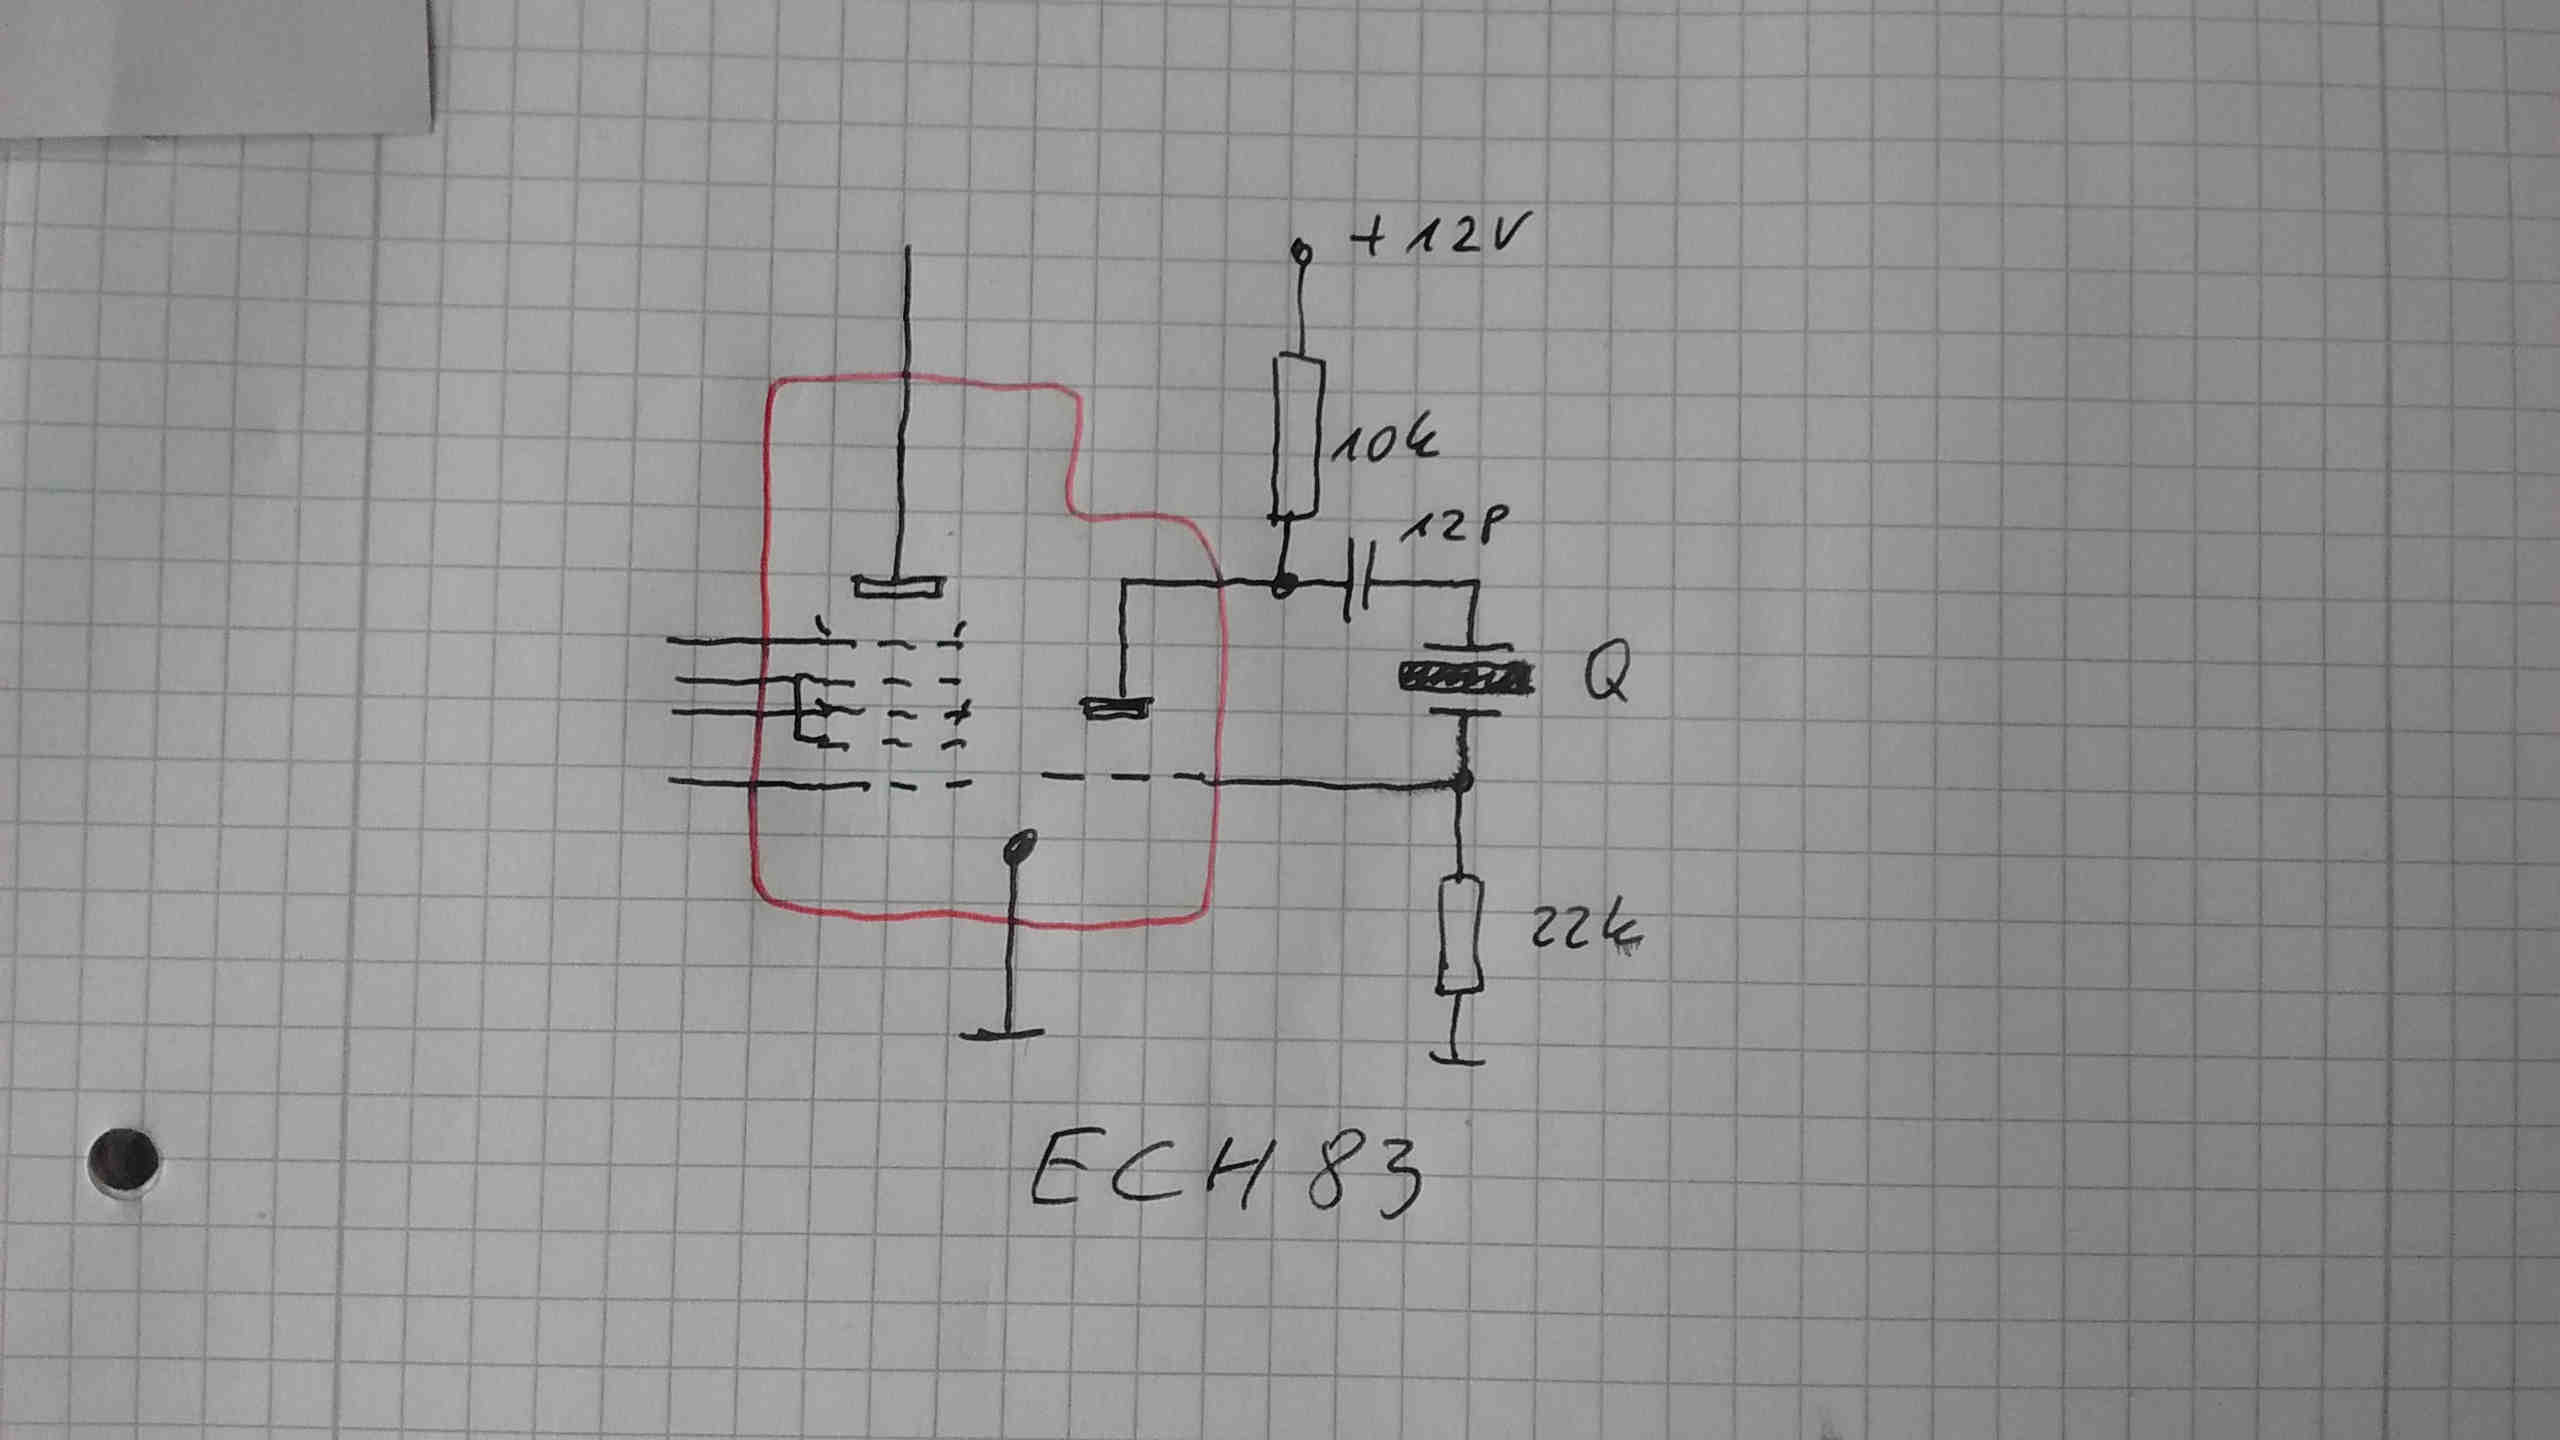 +12V
10k
12p
Q
22k
ECH83